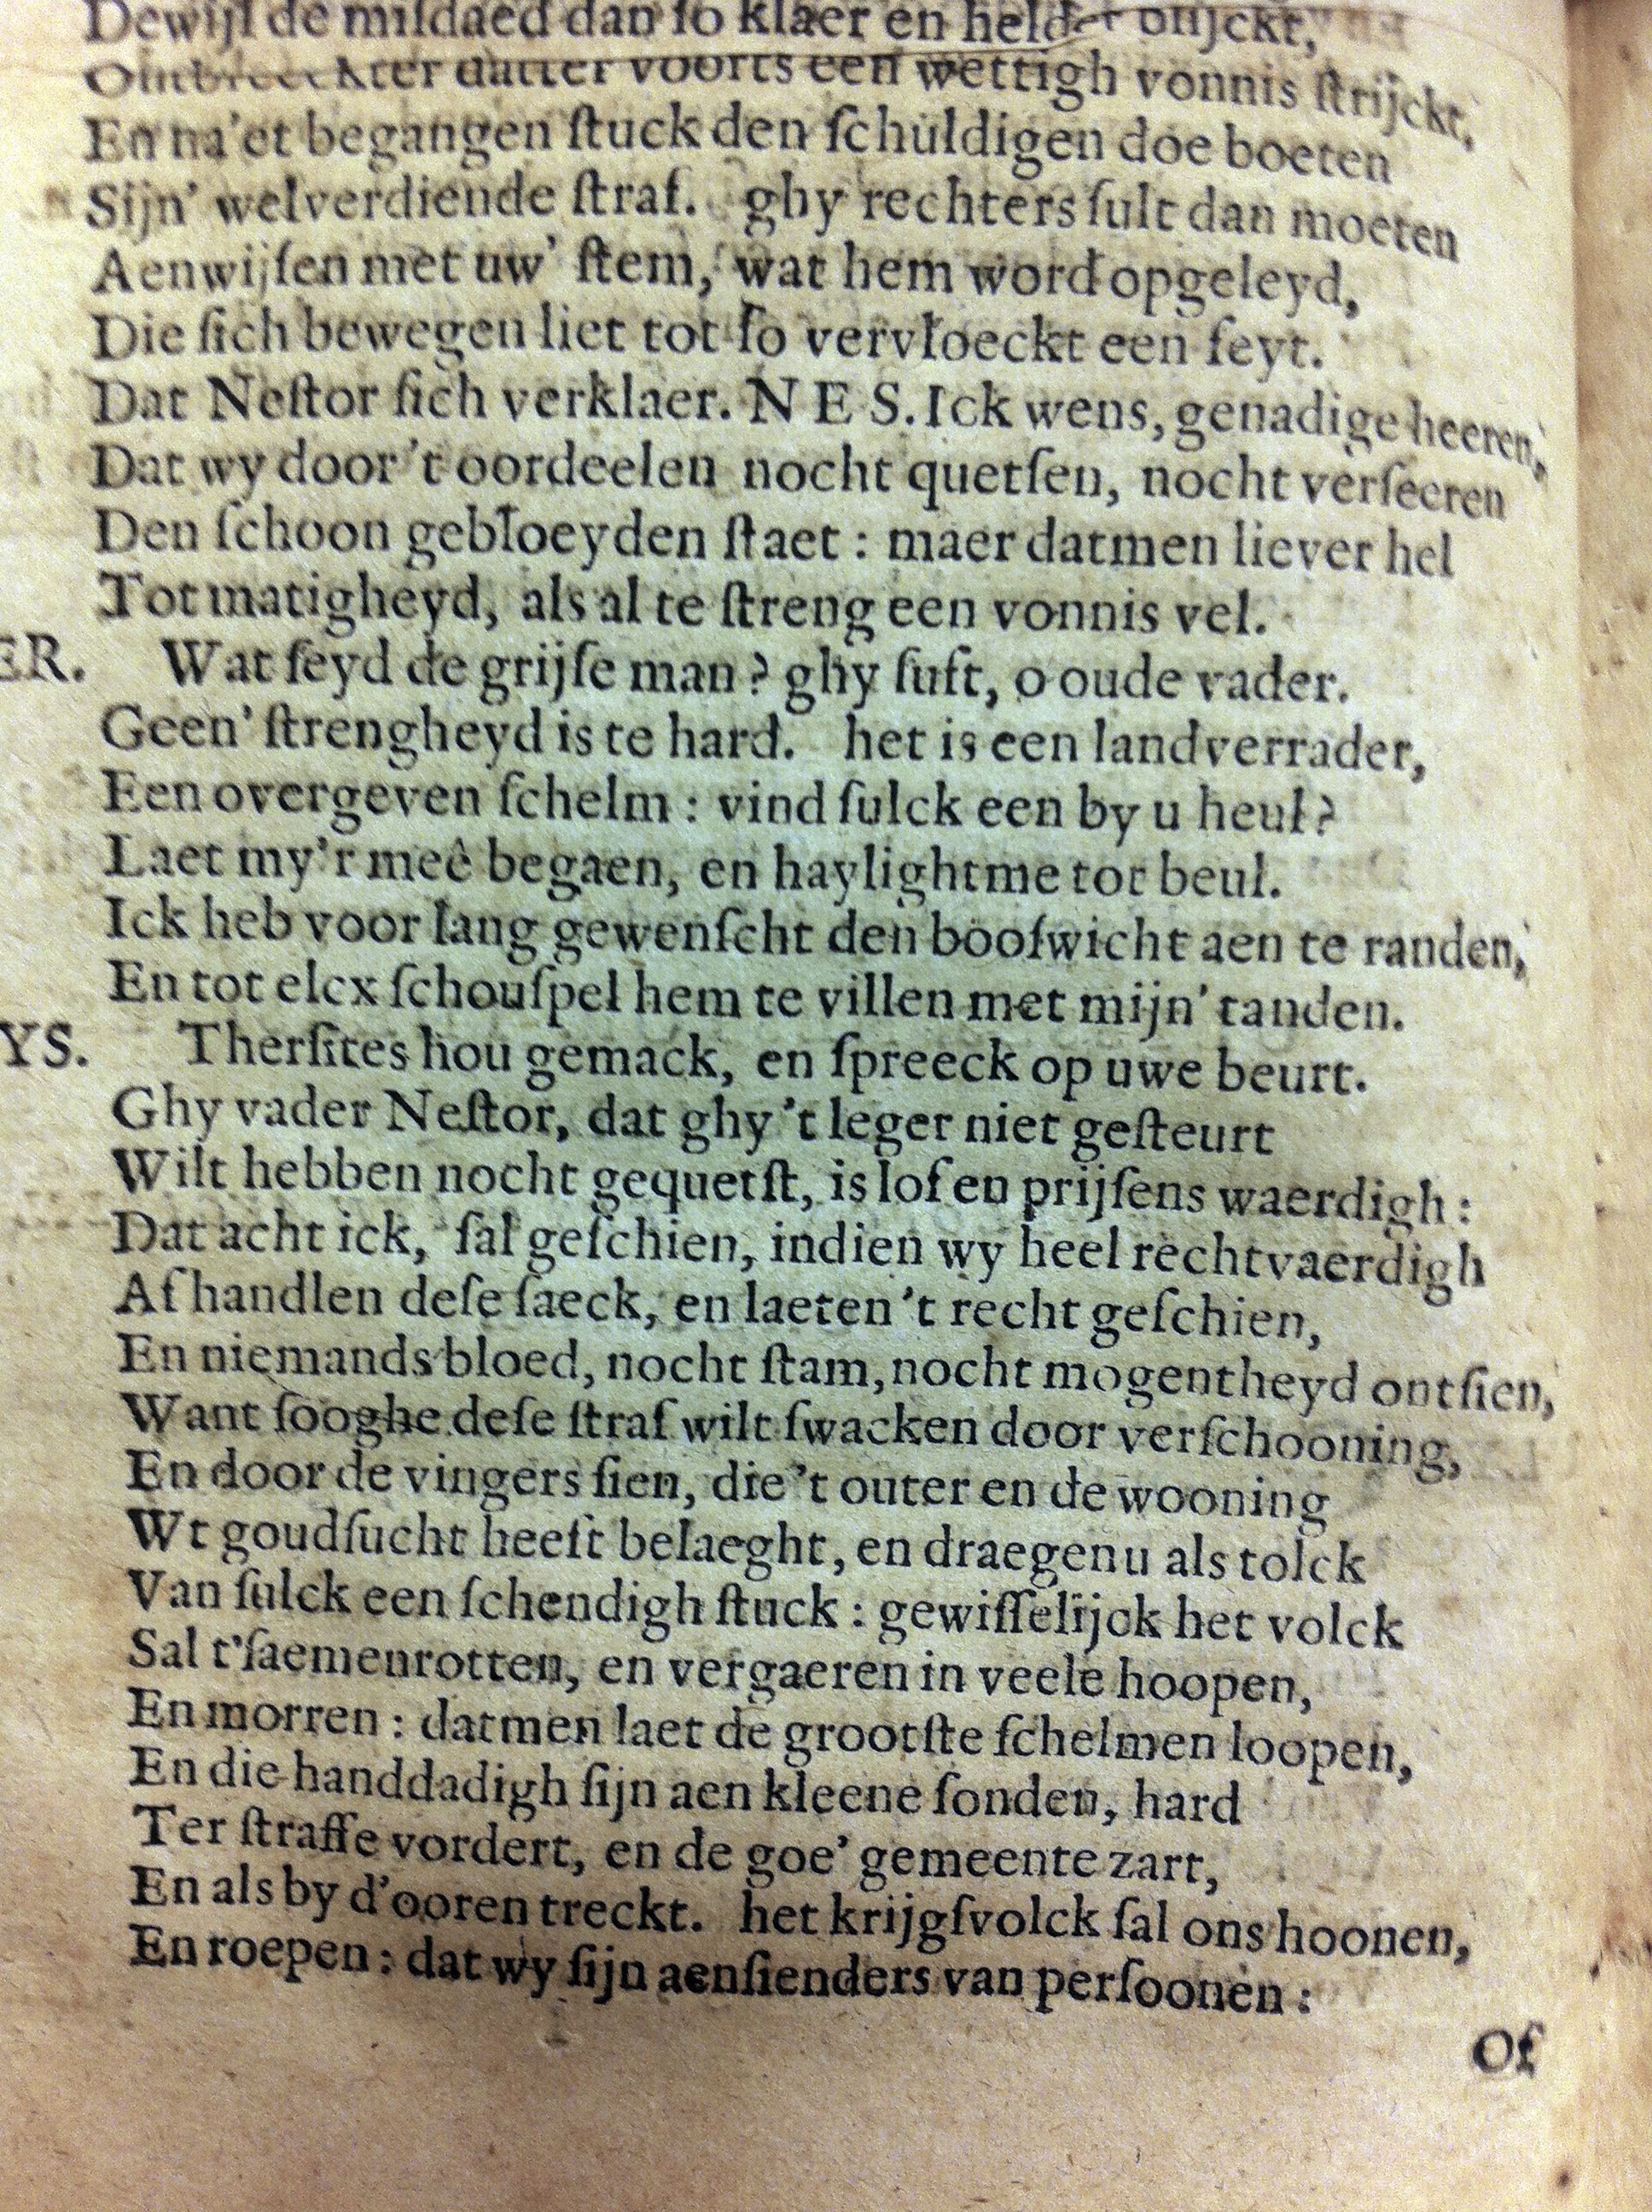 Dewijl de misdaed dan so klaer en helder blijckt,
datter voorts een wettigh vonnis strijckt,
En na'et begangen stuck den schuldigen doe boeten
Sijn' welverdiende straf. ghy rechters sult dan moeten
Aenwijsen met uw' stem, wat hem word opgeleyd,
Die sich bewegen liet tot so vervloeckt een feyt.
Dat Nestor sich verklaer. NES. Ick wens, genadige heeren,
Dat wy door 't oordeelen nocht quetsen, nocht verseeren
Den schoon gebloeyden staet : maer datmen liever hel
Tot matigheyd, als al te streng een vonnis vel.
ER. Wat seyd de grijse man ? ghy suft, o oude vader.
Geen' strengheyd is te hard. het is een landverrader,
Een overgeven schelm : vind sulck een by u heul ?
Laet my'r meê begaen, en haylightme tot beul.
Ick heb voor lang gewenscht den boofwicht aen te randen,
En tot elcx schouspel hem te villen met mijn' tanden.
YS. Thersites hou gemack, en spreeck op uwe beurt.
Ghy vader Nestor, dat ghy 't leger niet gesteurt
Wilt hebben nocht gequetst, is lof en prijsens waerdigh :
Dat acht ick, sal geschien, indien wy heel rechtvaerdigh
Afhandlen dese saeck, en laeten 't recht geschien,
En niemands bloed, nocht stam, nocht mogentheyd ontsien,
Want sooghe dese straf wilt swacken door verschooning,
En door de vingers sien, die 't outer en de wooning
Wt goudsucht heeft belaeght, en draegen u als tolck
Van sulck een schendigh stuck : gewisselijck het volck
Sal t'saemenrotten, en vergaeren in veele hoopen,
En morren : datmen laet de grootste schelmen loopen,
En die handdadigh sijn aen kleene sonden, hard
Ter straffe vordert, en de goe' gemeente zart,
En als by d'ooren treckt. het krijgsvolck sal ons hoonen,
En roepen : dat wy sijn aensienders van persoonen :
Of